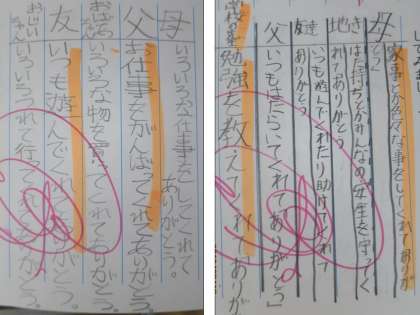 母
いろいろな仕事をしてくれて
ありがとう。
父
お仕事をがんばってくれてありがとう。
おばあちゃん
いろいろな物を買ってくれてありがとう。
友
いつも遊んでくれてありがとう。
おじいちゃん
いろいろつれて行ってくれてありがとう。
母
家事とか色々な事をしてくれてありが
とう
地き
はた持ちとかみんなの安全を守ってく
れてありがとう
友達
いつも遊んでくれたり助けてくれて
ありがとう
父
いつもはたらいてくれてありがとう
勉強を教えてくれてありが